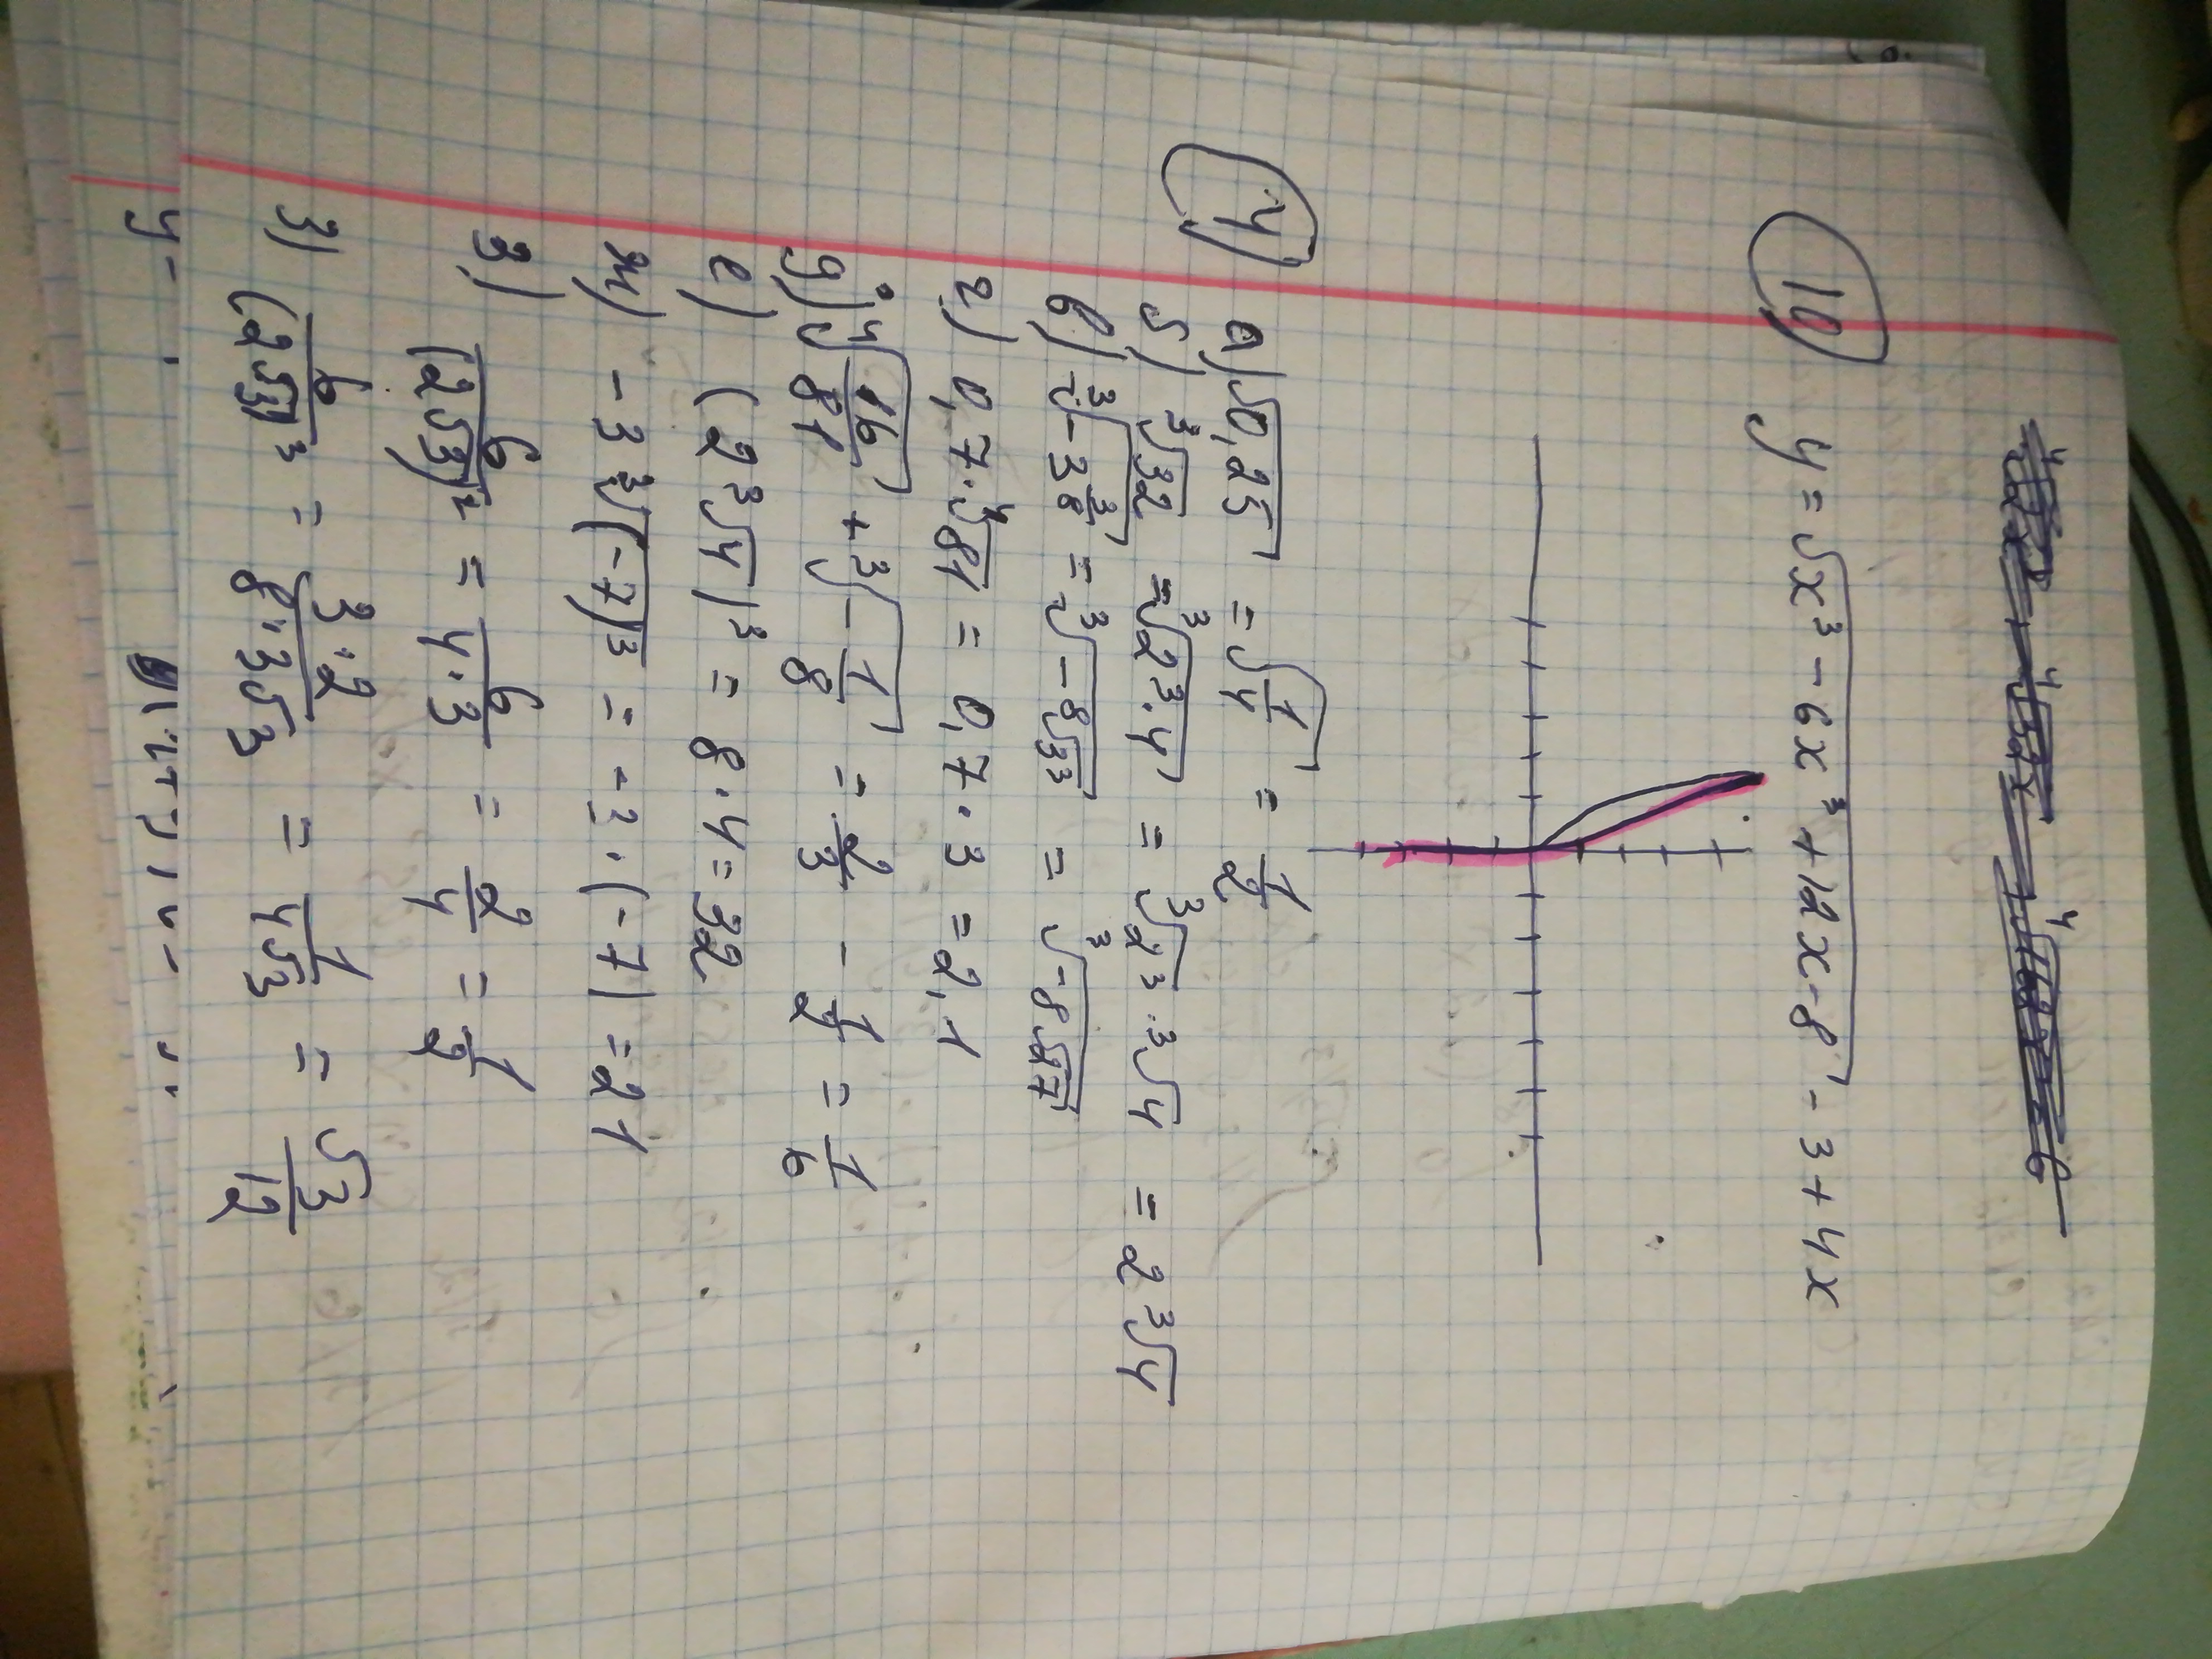 10) y = √(x³ - 6x³ + 12x - 8) - 3 + 4x
4) а) √0,25 = √(1/4) = 1/2
б) ³√32 = ³√(2³·4) = ³√2³ · ³√4 = 2³√4
в) ³√(-3 3/8) = ³√(-8√3³) = ³√(-8√27)
г) 0,7·⁴√81 = 0,7·3 = 2,1
д) ⁴√(16/81) + ³√(-1/8) = 2/3 - 1/2 = 1/6
е) (2³√4)³ = 8·4 = 32
ж) -3 ³√(-7)³ = -3·(-7) = 21
з) 6/(2√3)² = 6/(4·3) = 2/4 = 1/2
з) 6/(2√3)³ = 3·2/(8·3√3) = 1/(4√3) = √3/12